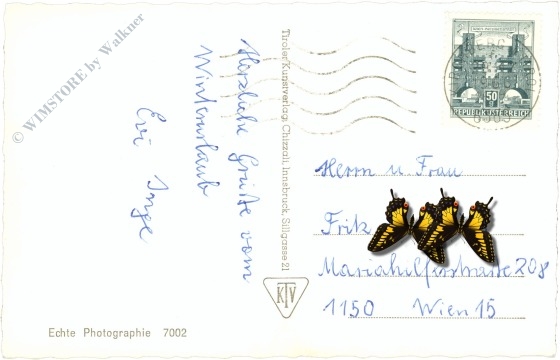 © WIMSTORE by Walkner
Herzliche Grüße vom
Winterurlaub
Evi Inge
Tiroler Kunstverlag, Chizzali, Innsbruck, Sillgasse 21
KTV
Echte Photographie 7002
50
REPUBLIK ÖSTERREICH
Herrn u. Frau
Fritz
Mariahilferstraße 208
1150 Wien 15